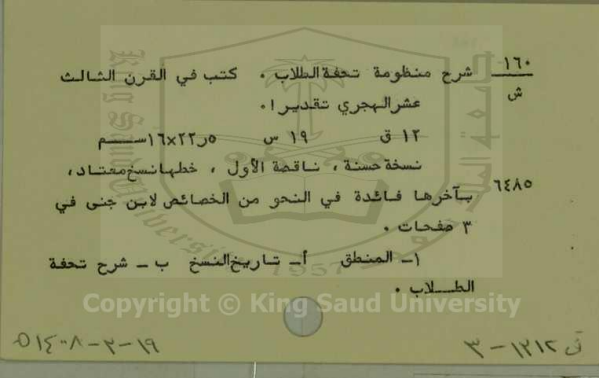 ١٦٠ شرح منظومة تحفة الطلاب . كتب في القرن الثالث
ش عشر الهجري تقديرا.
١٢ ق ١٩ س ٢٢٫٥×١٦ســـم
نسخة حسنة ، ناقصة الأول ، خطها نسخ معتاد ،
٦٤٨٥ بآخرها فائدة في النحو من الخصائص لابن جنى في
٣ صفحات .
١ـ المنطق أ ـ تاريخ النسخ ب ـ شرح تحفة
الطـــلاب .
Copyright © King Saud University
ق ١٢١٢-٣
١٩-٢-١٤٠٨
King Saud University
1957